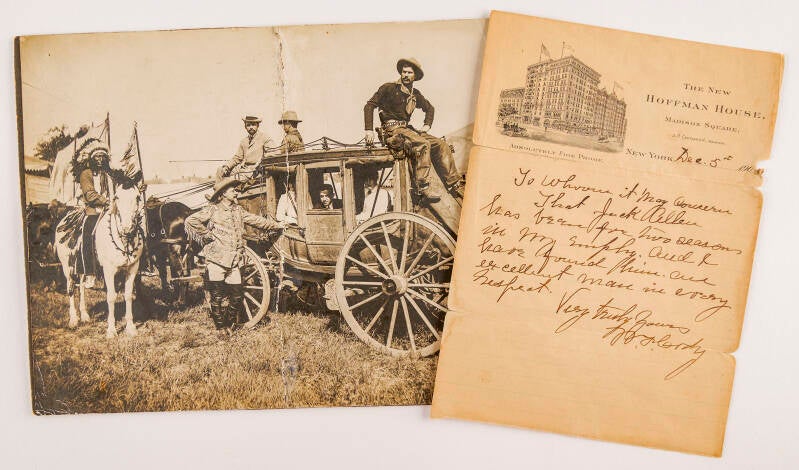 THE NEW
HOFFMAN HOUSE,
MADISON SQUARE,
ABSOLUTELY FIRE PROOF.
NEW YORK, Dec 5th 190
To Whom it May Concern
That Jack Allen
has been for two seasons
in my employ. and I
have found him an
excellent man in every
respect.
Very truly yours
W. F. Cody